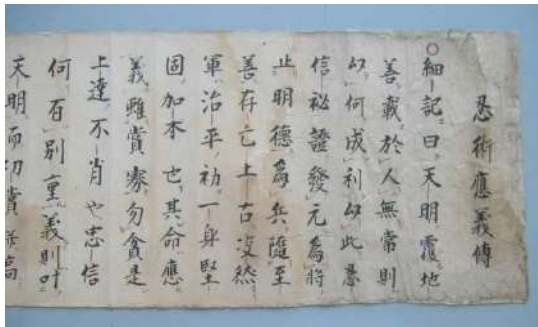 忍術應義傳
○細記曰天明覆地
善載於人無常則
以何成利以此忍
信祕證發元為將
止明德為兵随至
善存亡上古沒然
軍治平初一身堅
固加本也其命應
義雖賞寡勿貪是
上達不肖や忠信
何有別重義則叶
天明而功賞 高